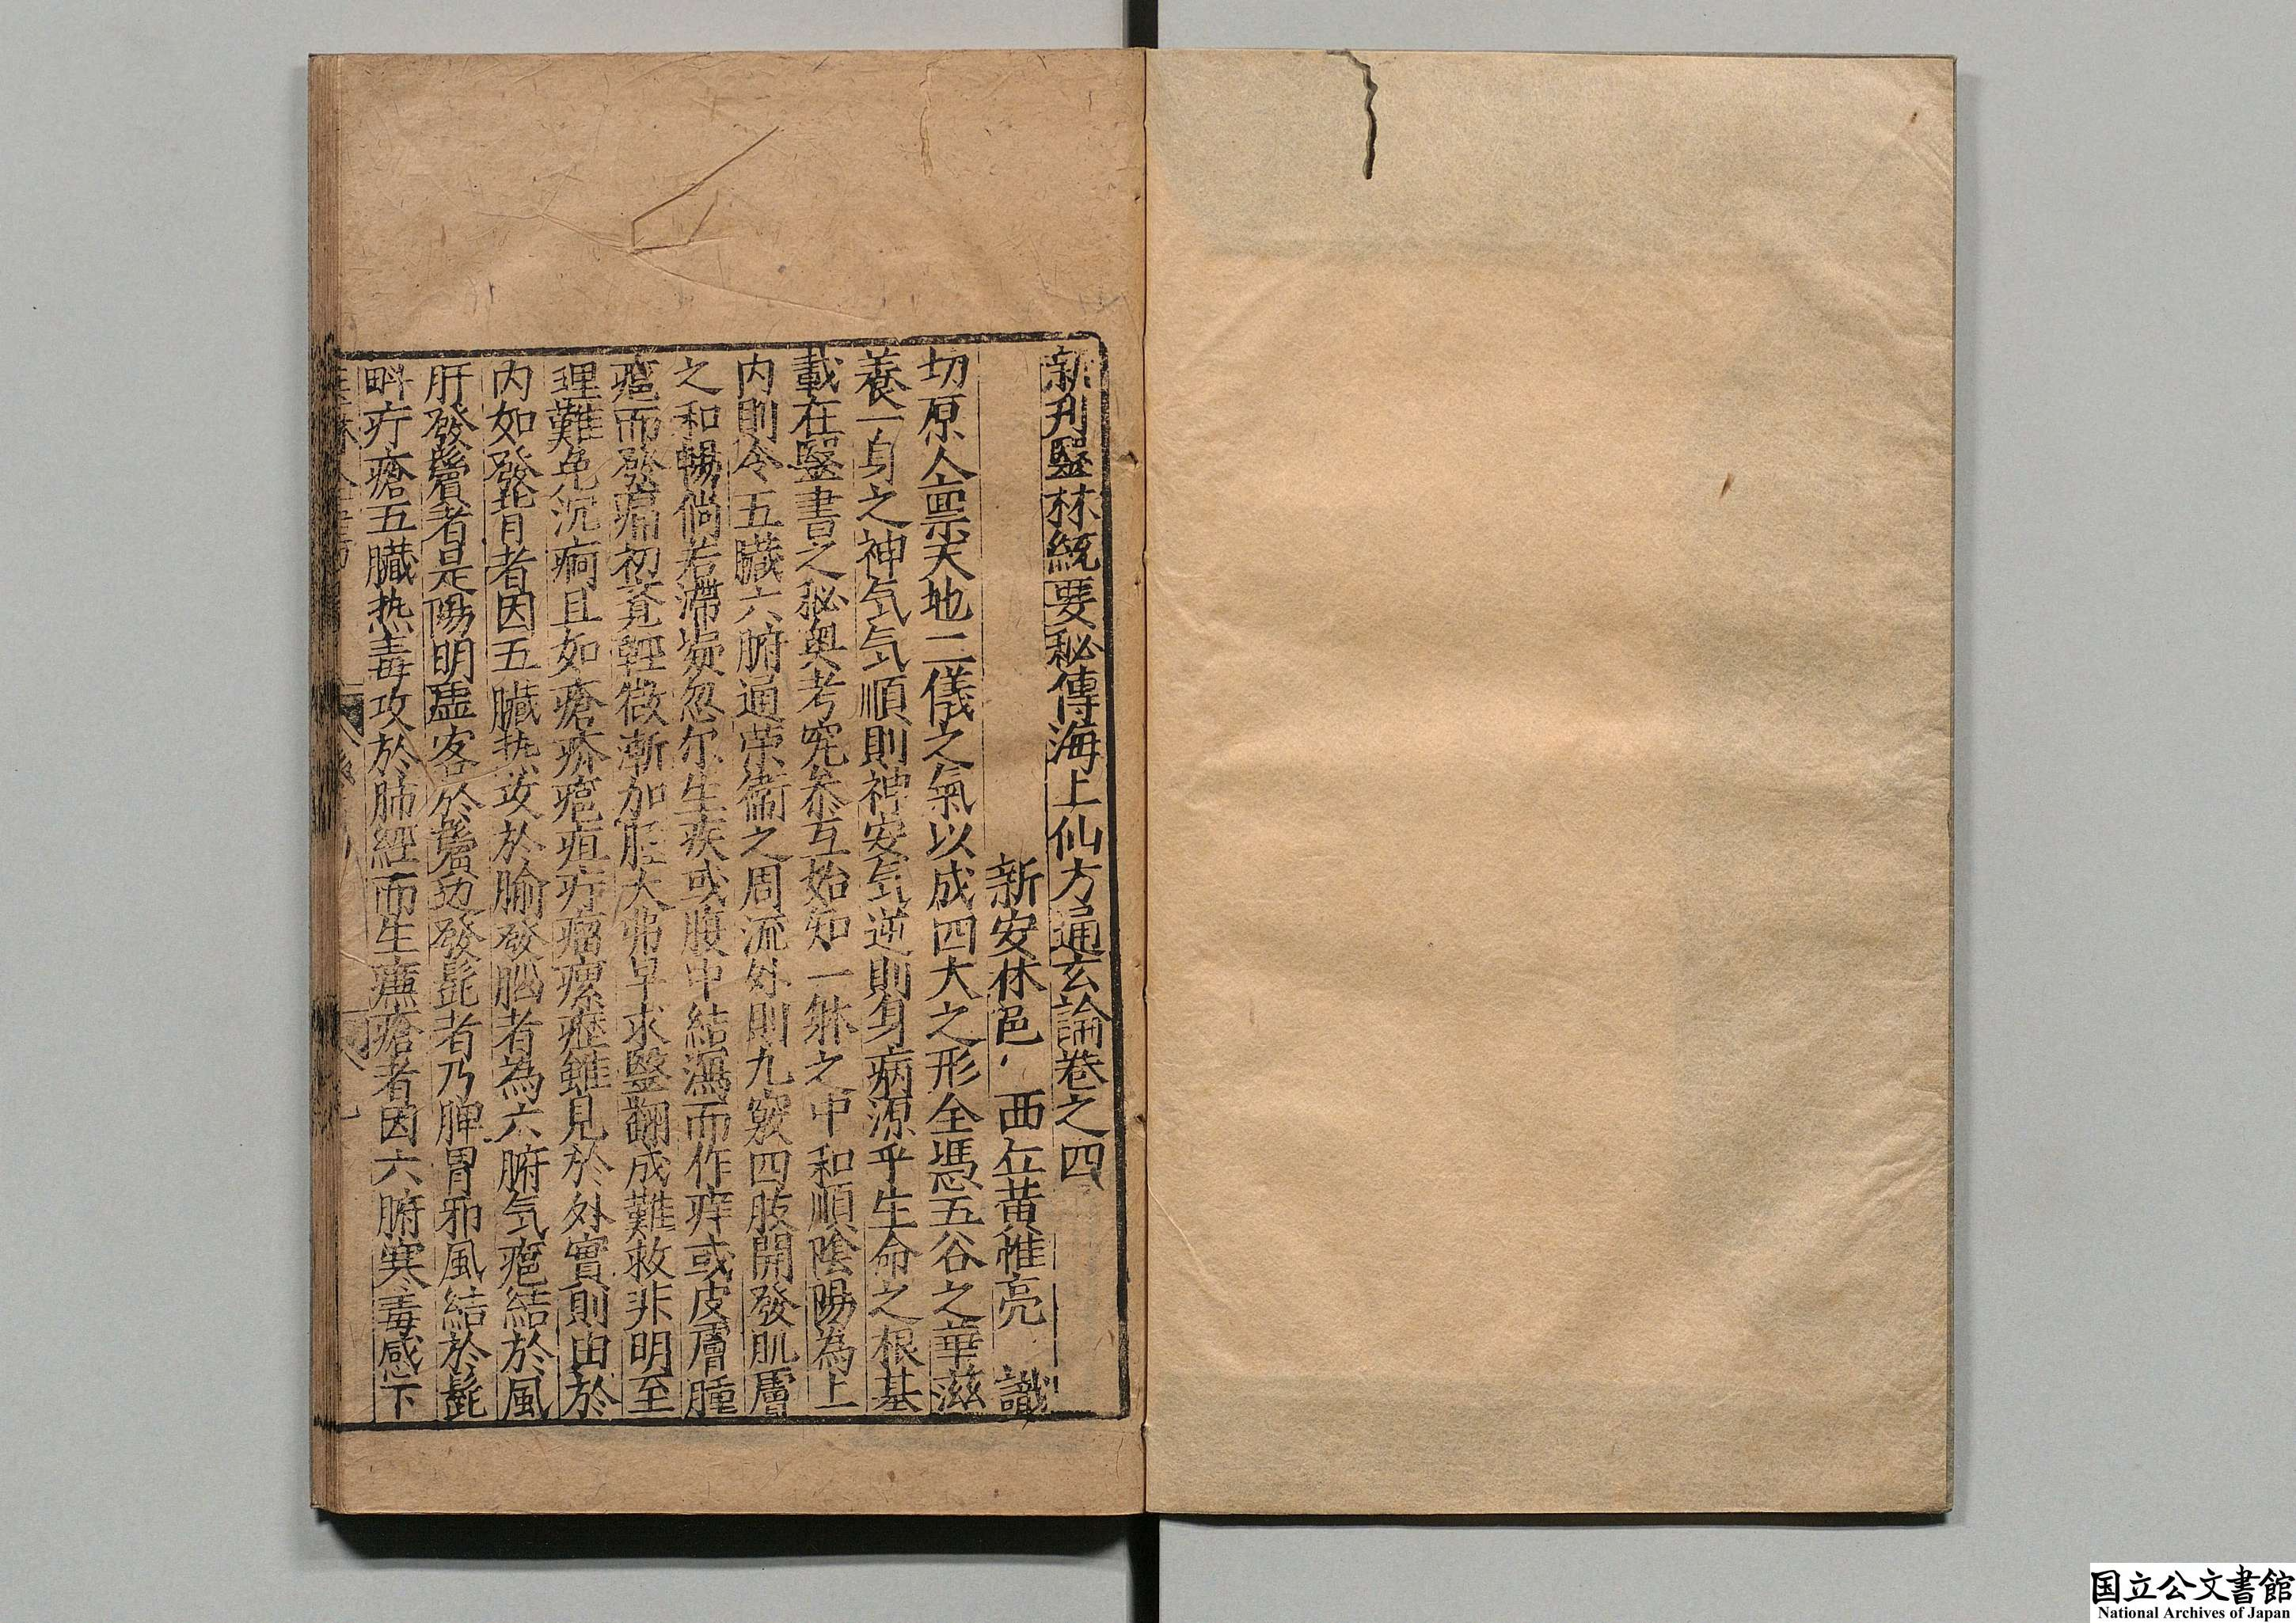 新刋醫林統要秘傳海上仙方通玄論卷之四
新安休邑 西在黄惟亮 識
切原人禀天地二儀之氣以成四大之形全憑五谷之華滋
養一身之神気気順則神安気逆則身病源乎生命之根基
載在醫書之秘奥考究叅互始知一躰之中和順陰陽為上
内則令五臓六腑通荣衞之周流外則九竅四肢開發肌膚
之和暢倘若滞㳄忽尓生疾或腹中結瀉而作痒或皮膚腫
瘡而發痛初覔輕微漸加脹大弗早求醫翻成難救非明至
理難免沉痾且如瘡疥瘡疽疔瘤瘰癧雖見於外實則由於
内如發背者因五臓热攻於腧發腦者為六腑気瘡結於風
肝發鬢者是陽明虚客於鬢边發髭者乃脾胃邪風結於髭
畔疔瘡五臓热毒攻於肺經而生㾾瘡者因六腑寒毒感下
国立公文書館
National Archives of Japan